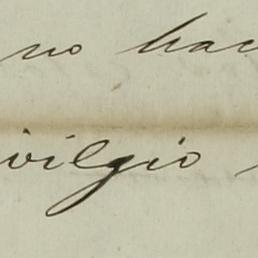 no hac
ivilgio